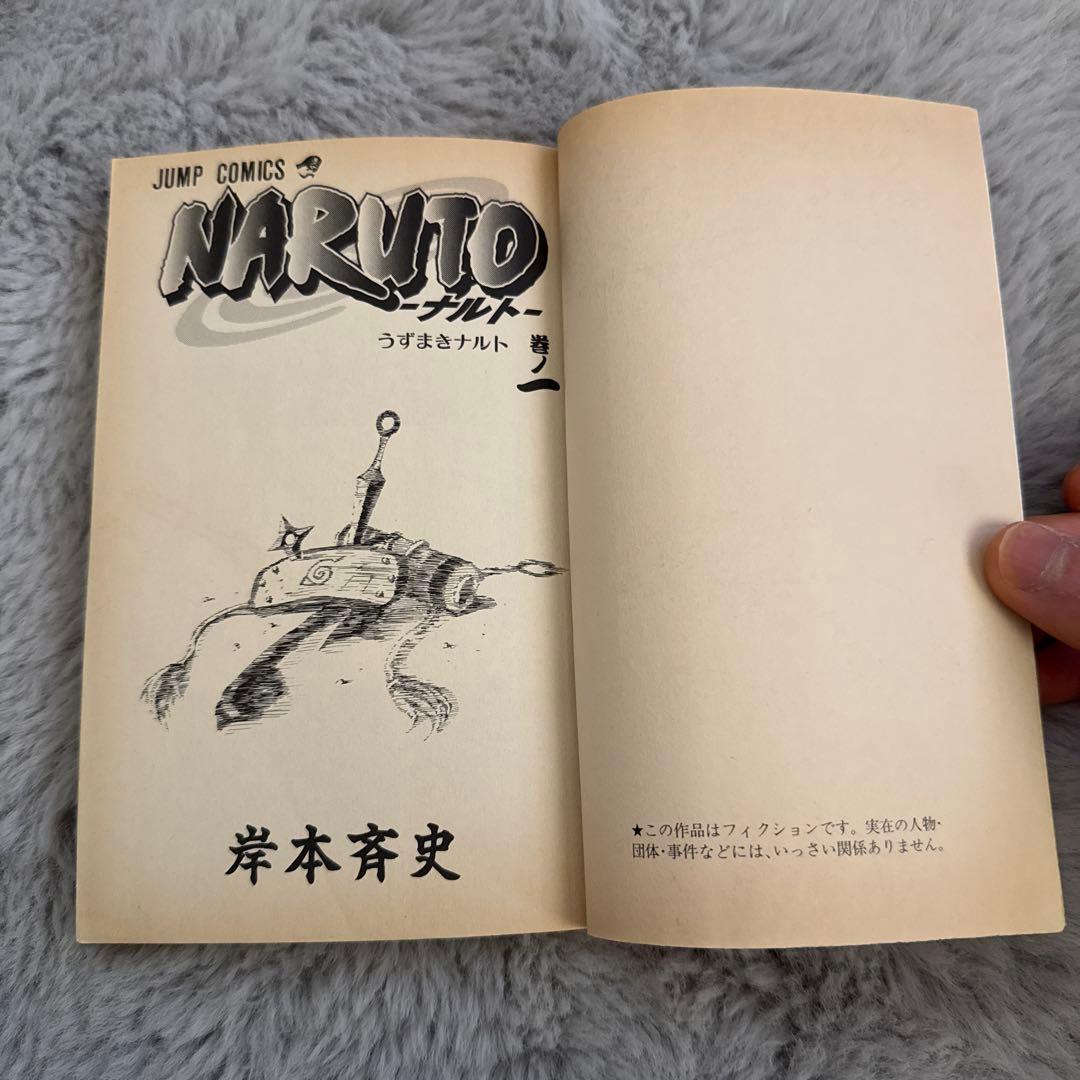 JUMP COMICS
NARUTO
-ナルト-
うずまきナルト 巻ノ一
岸本斉史
★この作品はフィクションです。実在の人物・
団体・事件などには、いっさい関係ありません。